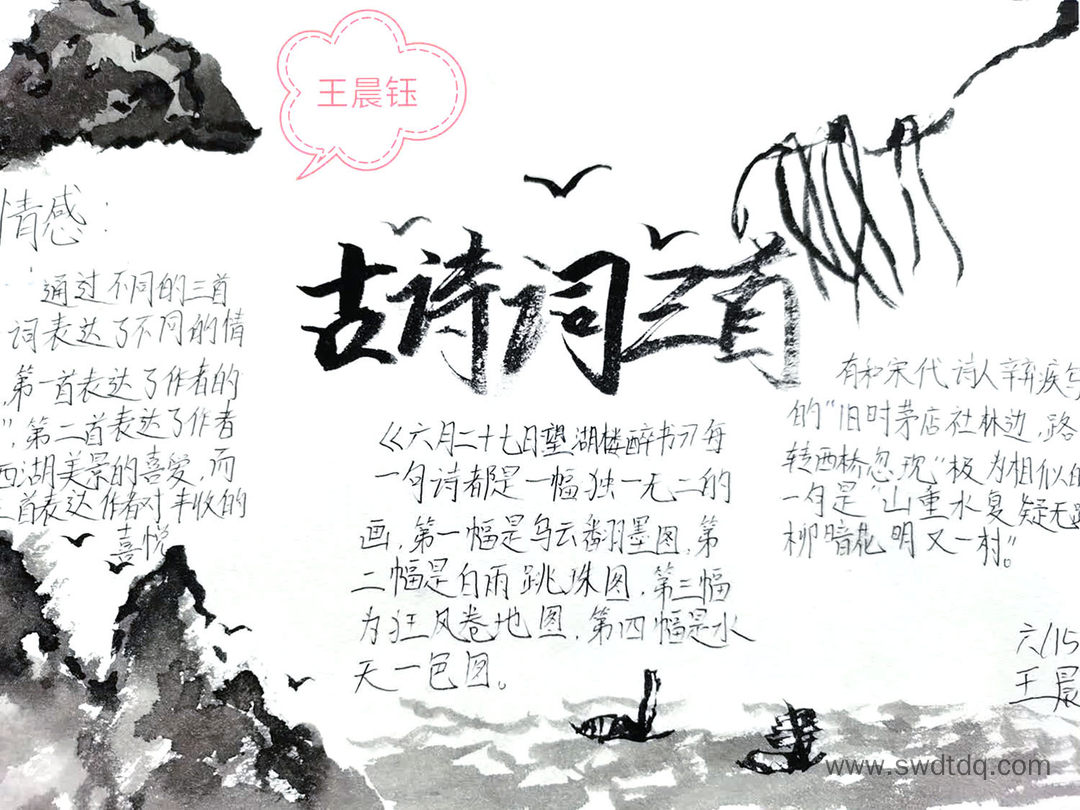 王晨钰
古诗词三首
情感：
通过不同的三首
词表达了不同的情
,第一首表达了作者的
",第二首表达了作者
西湖美景的喜爱,而
三首表达作者对丰收的
喜悦
《六月二十七日望湖楼醉书》每
一句诗都是一幅独一无二的
画,第一幅是乌云翻墨图,第
二幅是白雨跳珠图,第三幅
为狂风卷地图,第四幅是水
天一色图。
有和宋代诗人辛弃疾写
的"旧时茅店社林边,路
转西桥忽现"极为相似的
一句是"山重水复疑无路
柳暗花明又一村"。
六/15
王晨
www.swdtdq.com